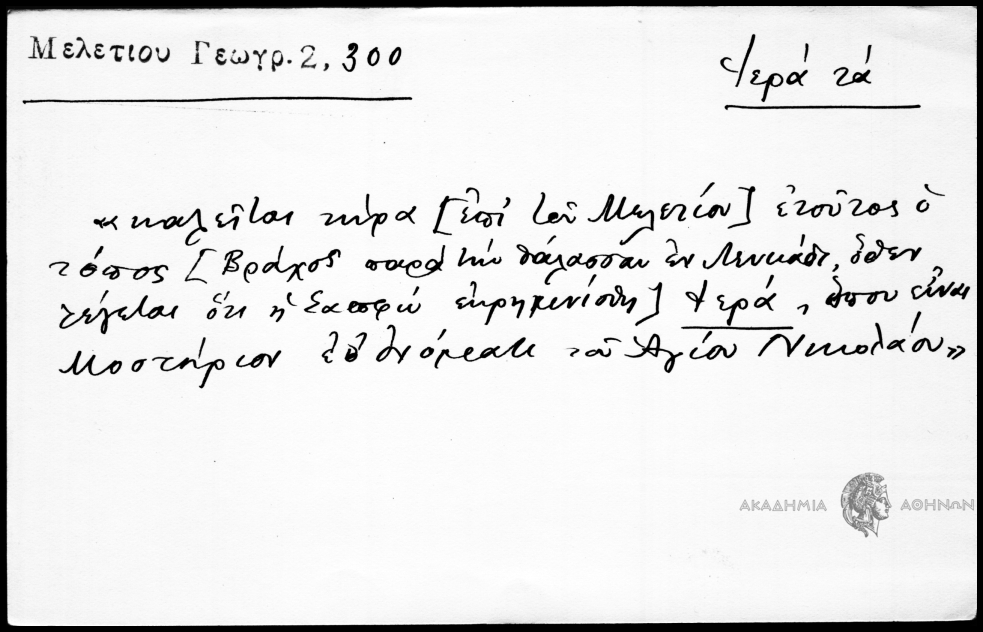 Μελετίου Γεωγρ. 2, 300
Ψερά τά
«καλεῖται τώρα [ἐπί τοῦ Μελετίου] ἐτοῦτος ὁ
τόπος [Βράχος παρά τήν θάλασσαν ἐν Λευκάδι, ὅθεν
λέγεται ὅτι ἡ Σαπφώ ἐκρημνίσθη] Ψερά, ὅπου εἶναι
Μοστήριον ἐπ' ὀνόματι τοῦ Ἁγίου Νικολάου»
ΑΚΑΔΗΜΙΑ ΑΘΗΝΩΝ